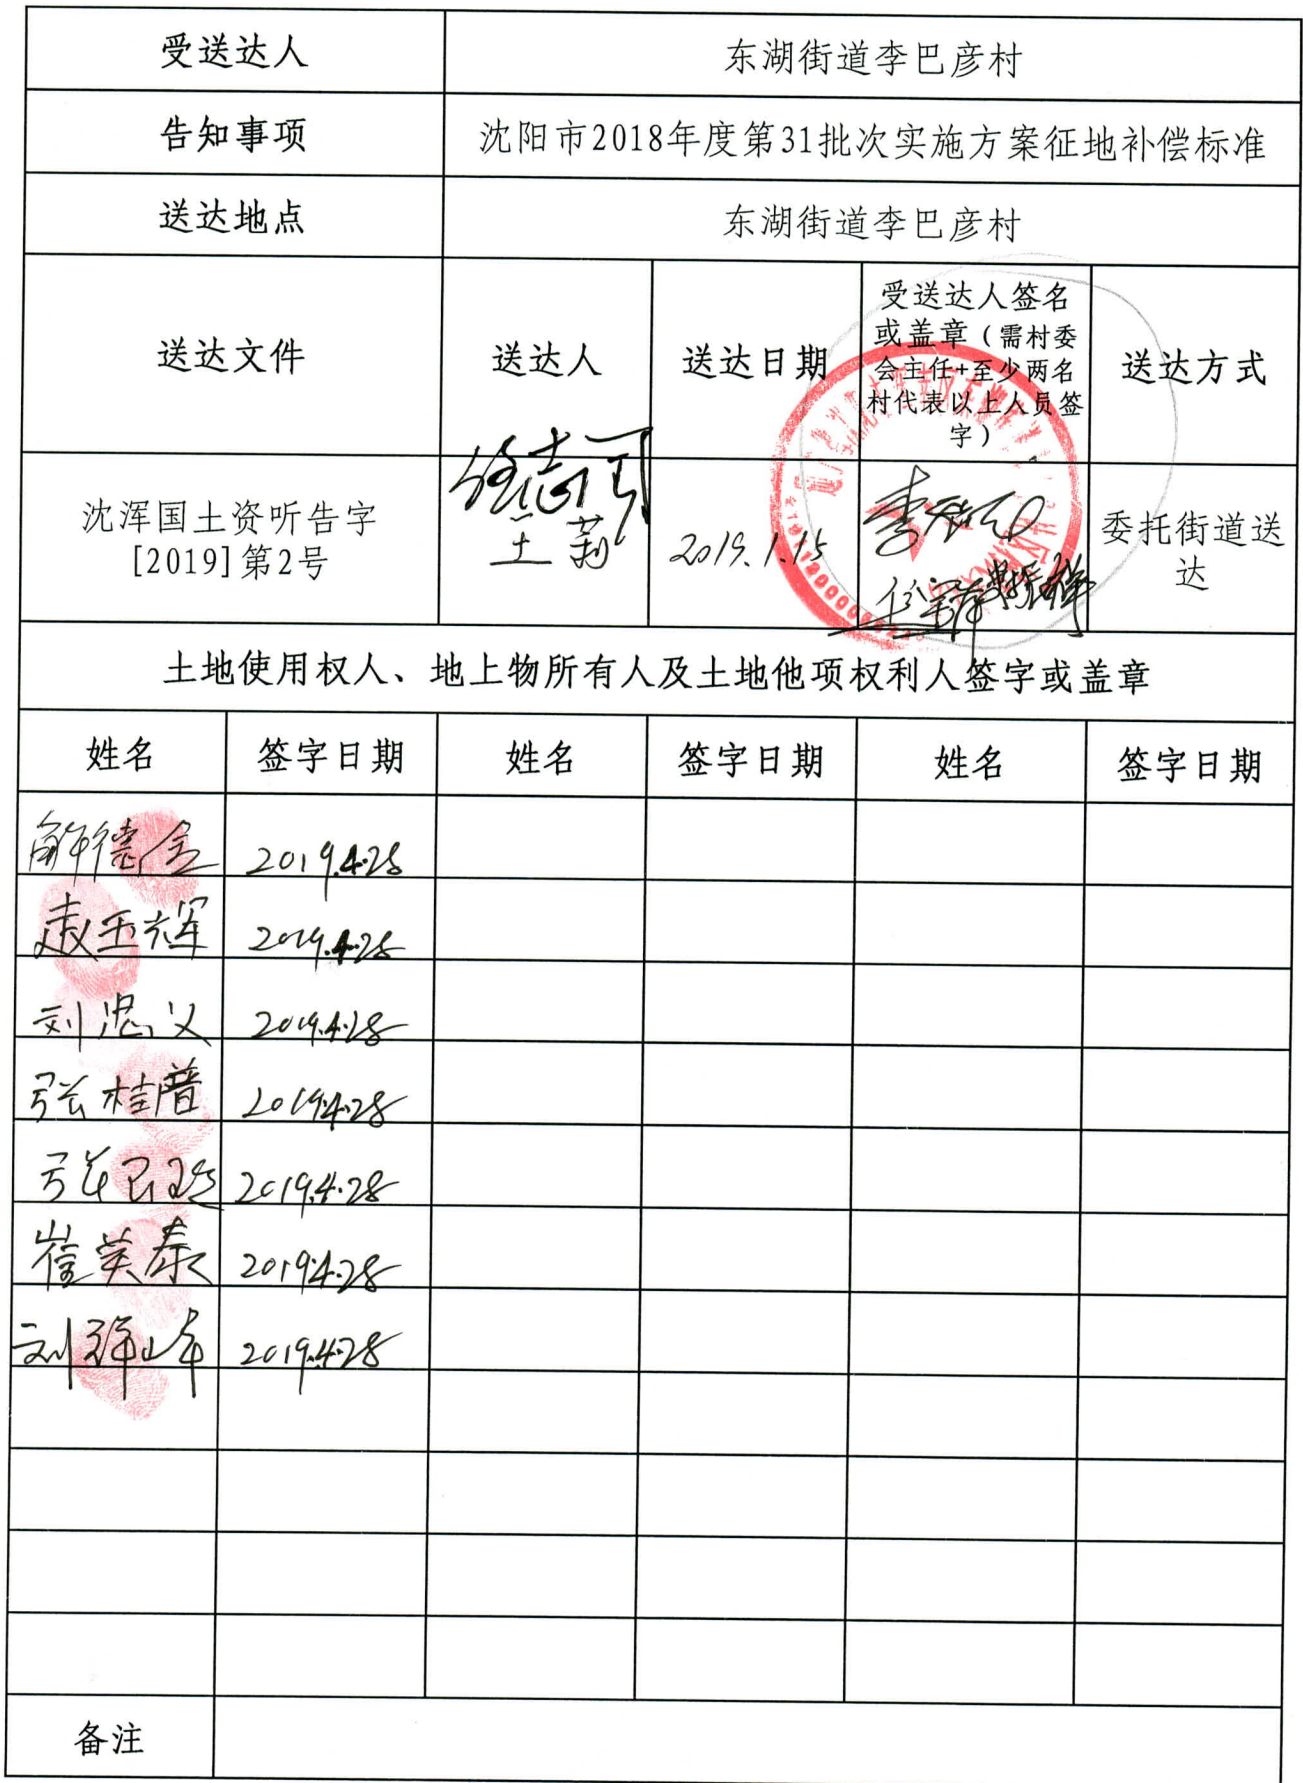 受送达人 东湖街道李巴彦村
告知事项 沈阳市2018年度第31批次实施方案征地补偿标准
送达地点 东湖街道李巴彦村
送达文件 送达人 送达日期 受送达人签名
或盖章（需村委
会主任+至少两名
村代表以上人员签
字） 送达方式
沈浑国土资听告字
[2019]第2号
王莉
2019.1.15
委托街道送
达
土地使用权人、地上物所有人及土地他项权利人签字或盖章
姓名 签字日期 姓名 签字日期 姓名 签字日期
解德金 2019.4.28
赵玉辉 2019.4.28
刘忠义 2019.4.28
张桂普 2019.4.28
2019.4.28
崔美泰 2019.4.28
刘祥峰 2019.4.28
备注